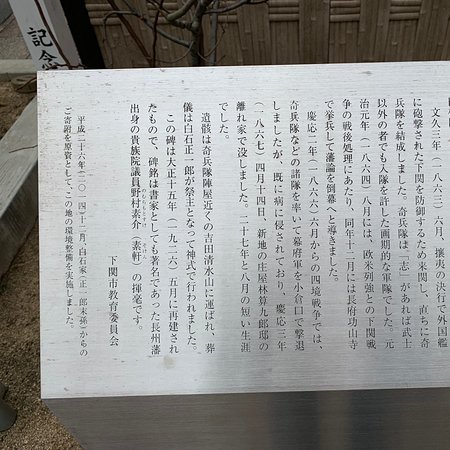 文久三年（一八六三）六月、攘夷の決行で外国艦
に砲撃された下関を防御するため来関し、直ちに奇
兵隊を結成しました。奇兵隊は「志」があれば武士
以外の者でも入隊を許した画期的な軍隊でした。元
治元年（一八六四）八月には、欧米列強との下関戦
争の戦後処理にあたり、同年十二月には長府功山寺
で挙兵して藩論を倒幕へと導きました。
慶応二年（一八六六）六月からの四境戦争では、
奇兵隊などの諸隊を率いて幕府軍を小倉口で撃退
しましたが、既に病に侵されており、慶応三年
（一八六七）四月十四日、新地の庄屋林算九郎邸の
離れ家で没しました。二十七年と八月の短い生涯
でした。
遺骸は奇兵隊陣屋近くの吉田清水山に運ばれ、葬
儀は白石正一郎が祭主となって神式で行われました。
この碑は大正十五年（一九二六）五月に再建され
たもので、碑銘は書家としても著名であった長州藩
出身の貴族院議員野村素介（素軒）の揮毫です。
のむらもとすけ
そけん
下関市教育委員会
平成二十六年（二〇一四）十二月、白石家（正一郎末孫）からの
ご寄附を原資として、この地の環境整備を実施しました。
記念